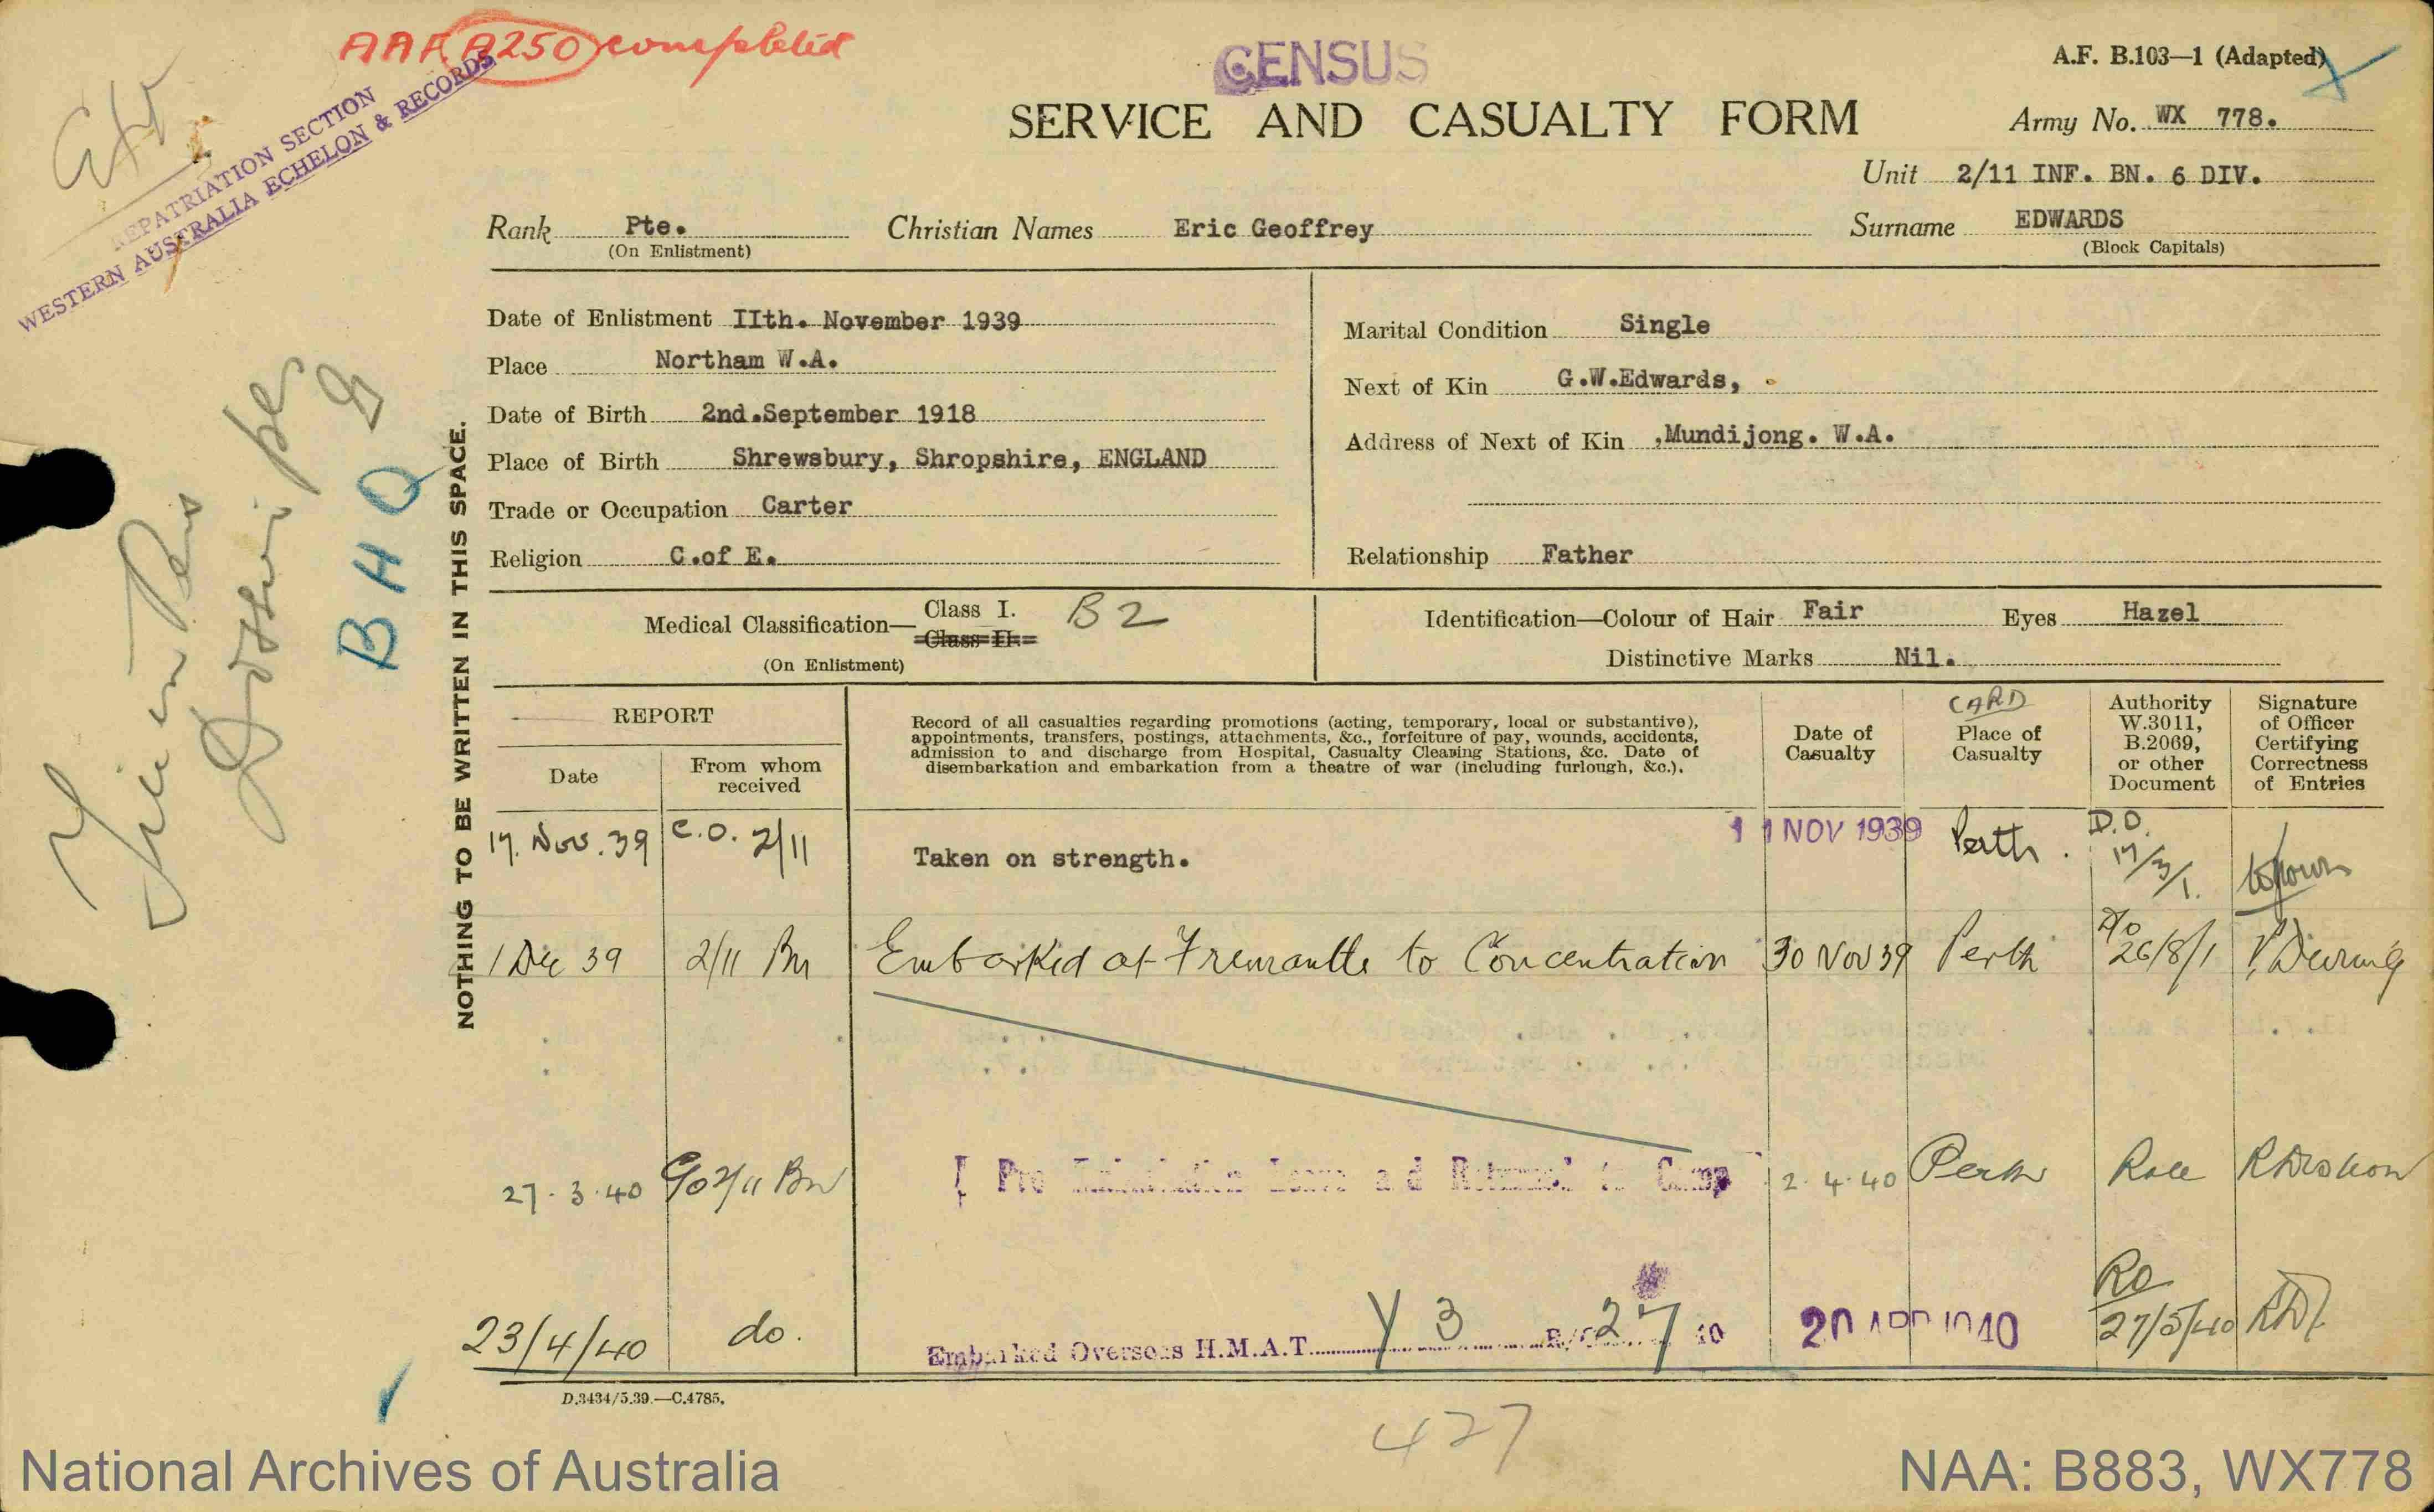 AAF A250 completed
CENSUS
A.F. B.103—1 (Adapted)
REPATRIATION SECTION
WESTERN AUSTRALIA ECHELON & RECORDS
SERVICE AND CASUALTY FORM
Army No. WX 778.
Unit 2/11 INF. BN. 6 DIV.
Rank Pte. Christian Names Eric Geoffrey Surname EDWARDS
(On Enlistment) (Block Capitals)
Date of Enlistment IIth. November 1939
Place Northam W.A.
Date of Birth 2nd.September 1918
Place of Birth Shrewsbury, Shropshire, ENGLAND
Trade or Occupation Carter
Religion C.of E.
Marital Condition Single
Next of Kin G.W.Edwards,
Address of Next of Kin ,Mundijong. W.A.
Relationship Father
BHQ
NOTHING TO BE WRITTEN IN THIS SPACE.
Medical Classification— Class I. B2
Class II.
(On Enlistment)
Identification—Colour of Hair Fair Eyes Hazel
Distinctive Marks Nil.
REPORT
Date
From whom
received
Record of all casualties regarding promotions (acting, temporary, local or substantive),
appointments, transfers, postings, attachments, &c., forfeiture of pay, wounds, accidents,
admission to and discharge from Hospital, Casualty Clearing Stations, &c. Date of
disembarkation and embarkation from a theatre of war (including furlough, &c.).
Date of
Casualty
CARD
Place of
Casualty
Authority
W.3011,
B.2069,
or other
Document
Signature
of Officer
Certifying
Correctness
of Entries
17. Nov. 39 C.O. 2/11 Taken on strength. 11 NOV 1939 Perth. D.O. 17/3/1.
1 Dec 39 2/11 Bn Embarked at Fremantle to Concentration 30 Nov 39 Perth 26/8/1
27.3.40 2/11 Bn Pre Embarkation Leave and Returned to Camp 2.4.40 Perth
23/4/40 do. Embarked Overseas H.M.A.T. Y 3 27 40 20 APR 1940 RO 27/5/40
D.3434/5.39.—C.4785.
427
National Archives of Australia
NAA: B883, WX778